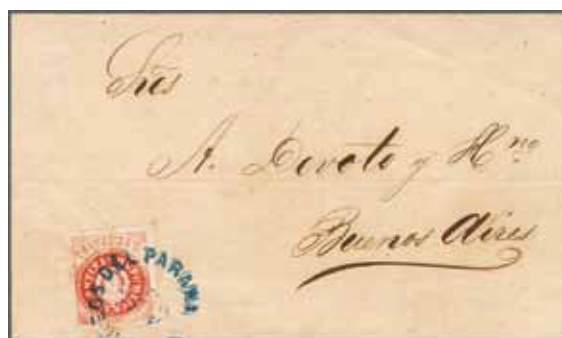 Sres
A. Devoto y Hno
Buenos Aires
DEL PARANA